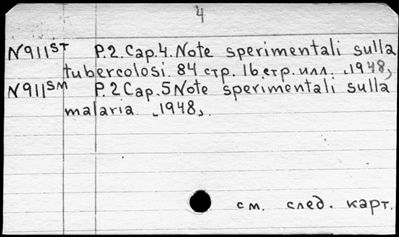 4
N911ST P.2.Cap.4.Note sperimentali sulla
tubercolosi. 84 стр. 16 стр. илл. „1948„
N911SM P.2 Cap.5 Note sperimentali sulla
malaria „1948„.
см. след. карт.